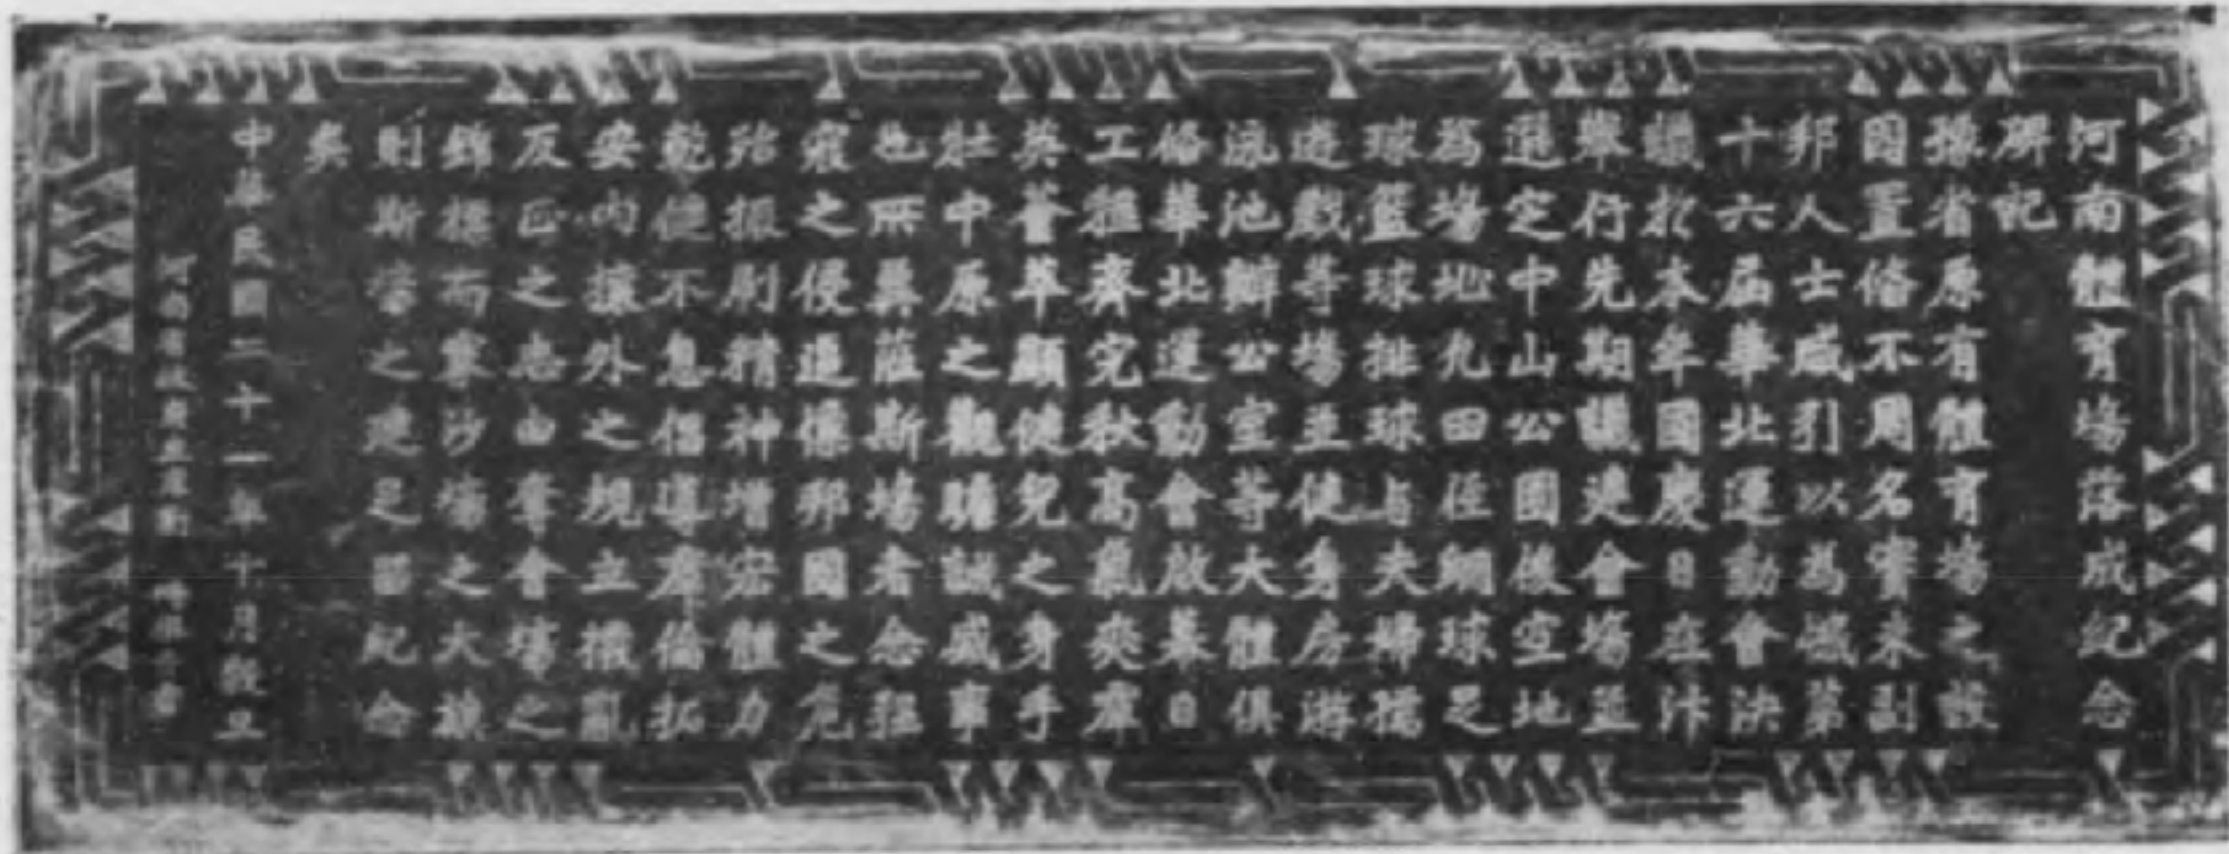 河南體育場落成紀念
碑記
豫省原有體育場之設
因置俻不周名實未副
邦人士咸引以為憾第
十六届華北運動會決
議於本年國慶日在汴
舉行先期議建會場並
選定中山公園後空地
為場地九田徑網球足
球籃球排球与夫婦孺
遊戲等場並健身房游
泳池辦公室等大體俱
俻華北運動會啟幕日
工程齊完秋高氣爽羣
英薈萃顯健兒之身手
壯中原之觀瞻誠盛事
也所冀蒞斯場者念強
寇之侵逼懍邦國之危
殆振刷精神增宏體力
乾健不息倡導羣倫拓
安內攘外之規立撥亂
反正之基由奪會場之
錦標而寒沙場之大旗
則斯碧之建足留紀念
矣
中華民國二十一年十月穀旦
河南省政府主席劉